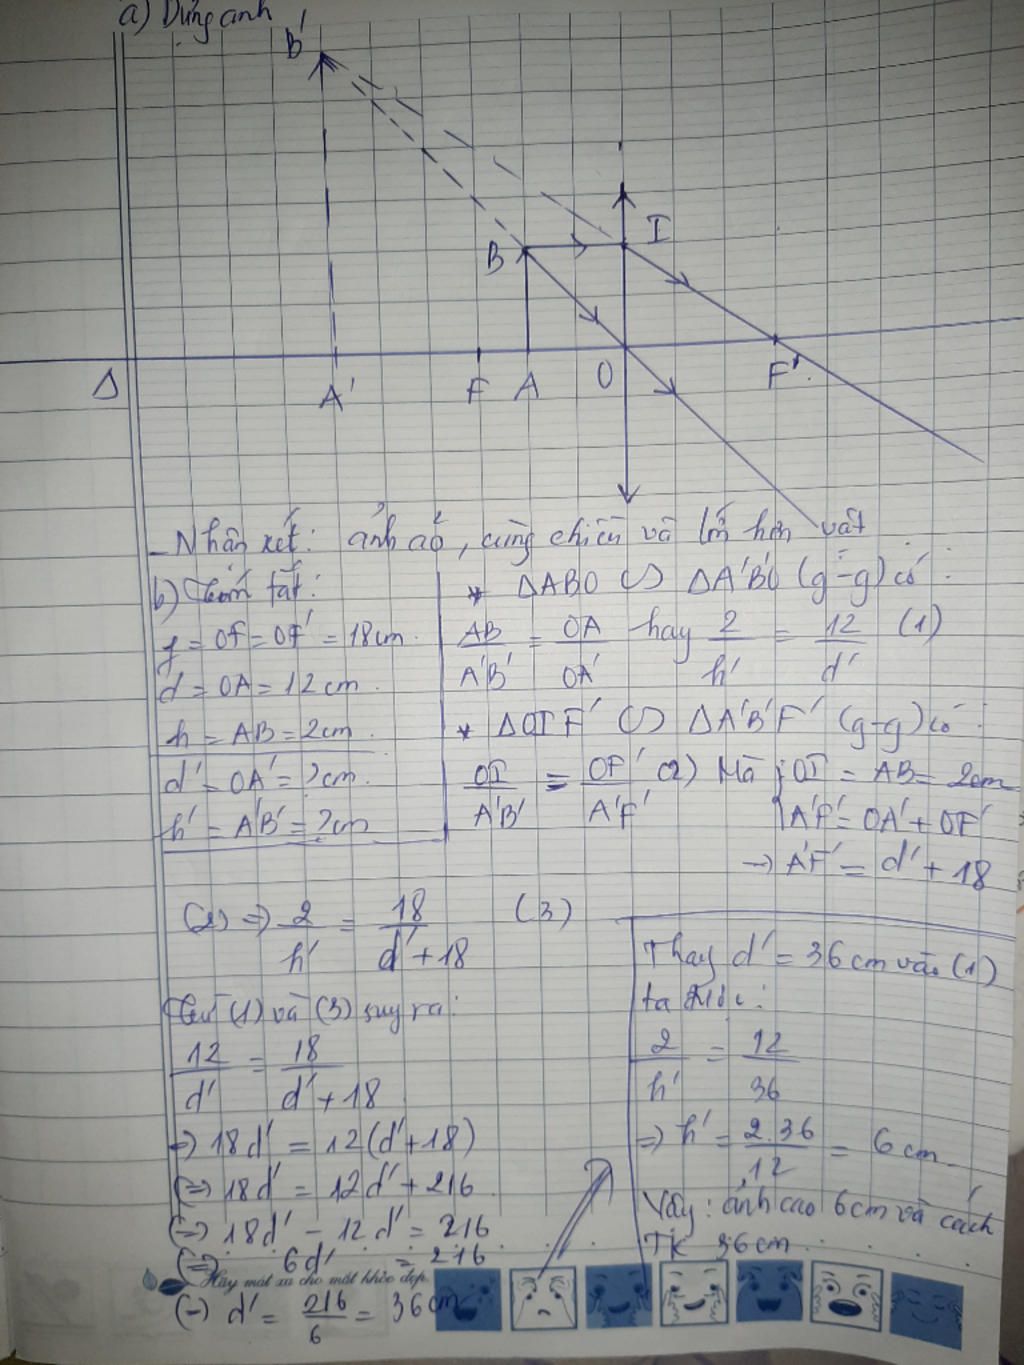 a) Dựng ảnh
B'
I
B
Δ
A'
F
A
O
F'
- Nhận xét: ảnh ảo, cùng chiều và lớn hơn vật
b) Tóm tắt:
f = OF = OF' = 18cm.
d = OA = 12cm.
h = AB = 2cm.
d' = OA' = ?cm.
h' = A'B' = ?cm
* ΔABO ∽ ΔA'B'O (g-g) có:
AB/A'B' = OA/OA' hay 2/h' = 12/d' (1)
* ΔOIF' ∽ ΔA'B'F' (g-g) có:
OI/A'B' = OF'/A'F' (2) Mà { OI = AB = 2cm
A'F' = OA' + OF'
→ A'F' = d' + 18
(2) => 2/h' = 18/d'+18 (3)
Từ (1) và (3) suy ra:
12/d' = 18/d'+18
=> 18d' = 12(d'+18)
(=> 18d' = 12d' + 216
(=> 18d' - 12d' = 216
(=> 6d' = 216
(=) d' = 216/6 = 36cm
Thay d' = 36cm vào (1)
ta được:
2/h' = 12/36
=> h' = 2.36/12 = 6cm
Vậy: ảnh cao 6cm và cách
TK 36cm
Hãy mát xa cho mắt khỏe đẹp.